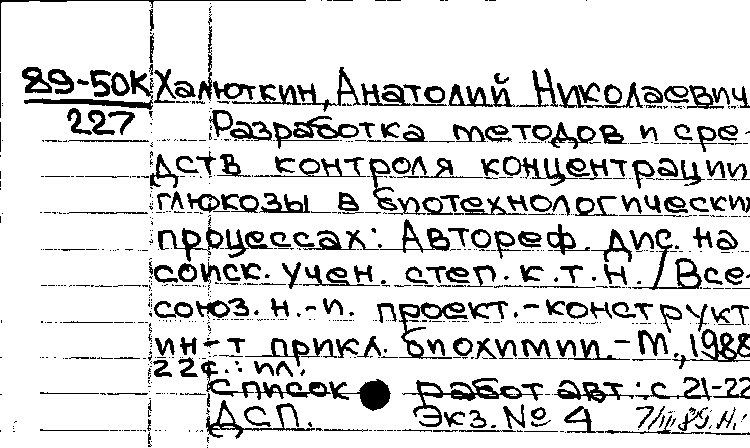 89-50К Халюткин, Анатолий Николаевич
227 Разработка методов и сре-
дств контроля концентрации
глюкозы в биотехнологически
процессах: Автореф. дис. на
соиск. учен. степ. к.т.н. / Все-
союз. н.-и. проект.-конструкт
ин-т прикл. биохимии.-М., 1988
22с.: ил.
Список работ авт.: с. 21-22
ДСП. Экз. № 4